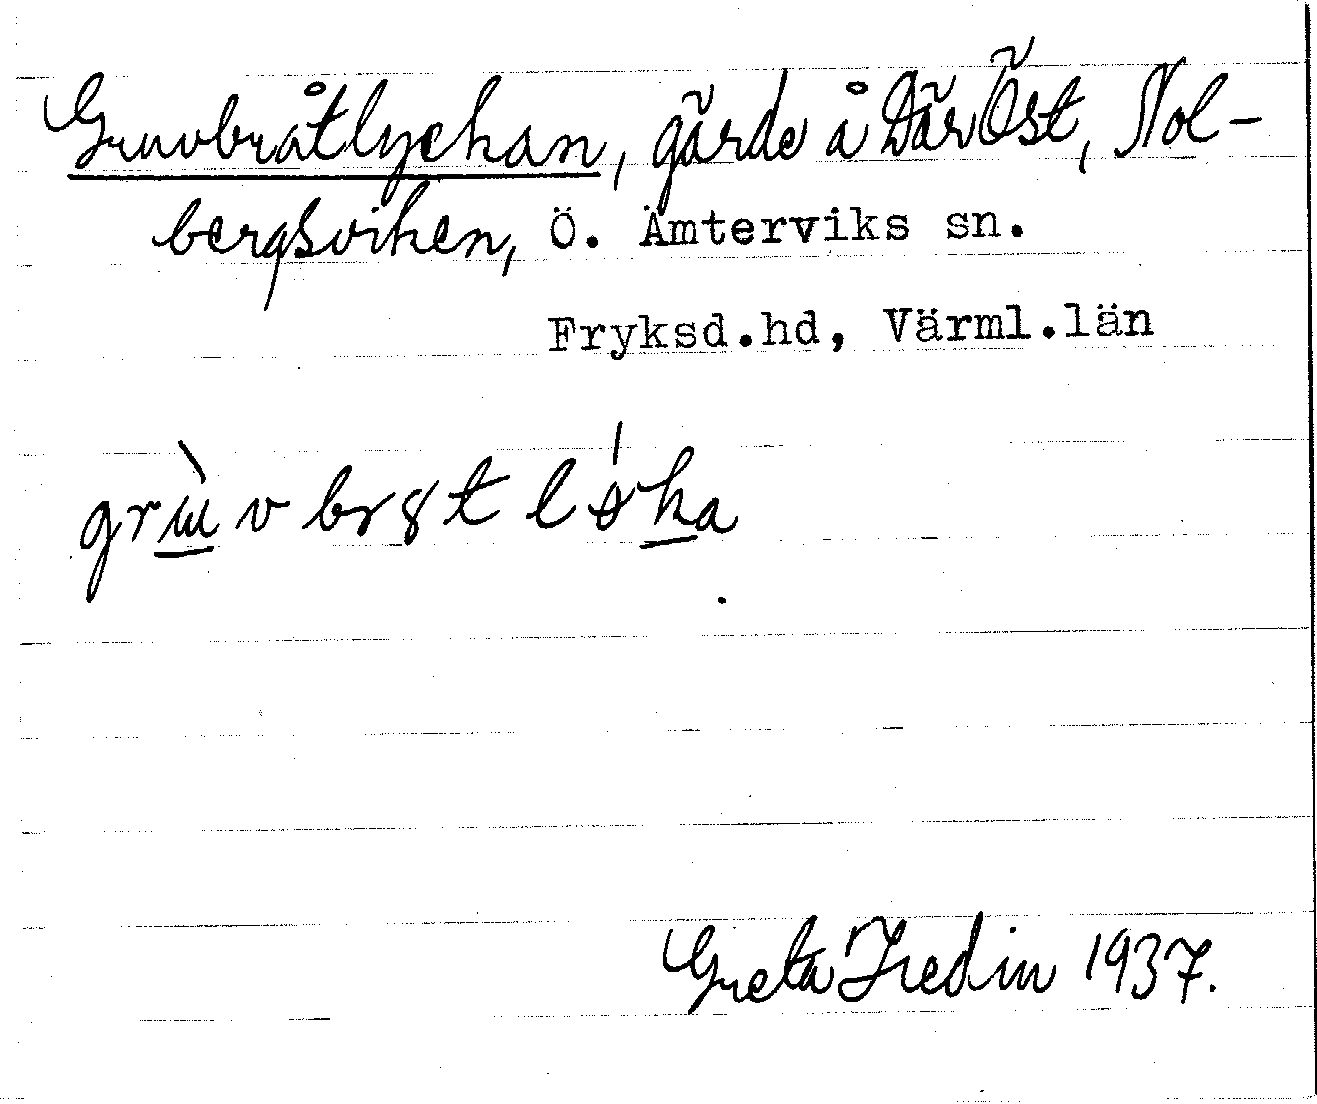 Gruvbråtlyckan, gärde å Där Öst, Nol-
bergsviken, Ö. Ämterviks sn.
Fryksd.hd, Värml.län
Greta Fredin 1937.